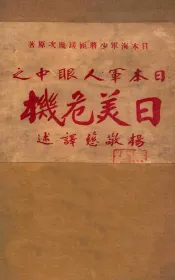 日本海軍少將匝瑳胤次原著
日本軍人眼中之
日美危機
楊敬慈譯述